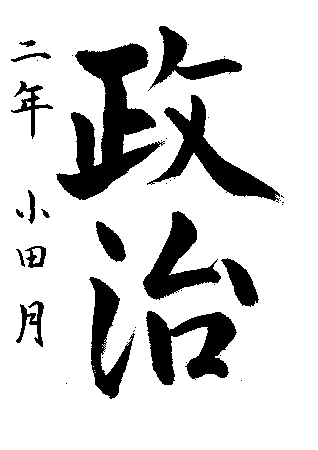 政治
二年 小田月